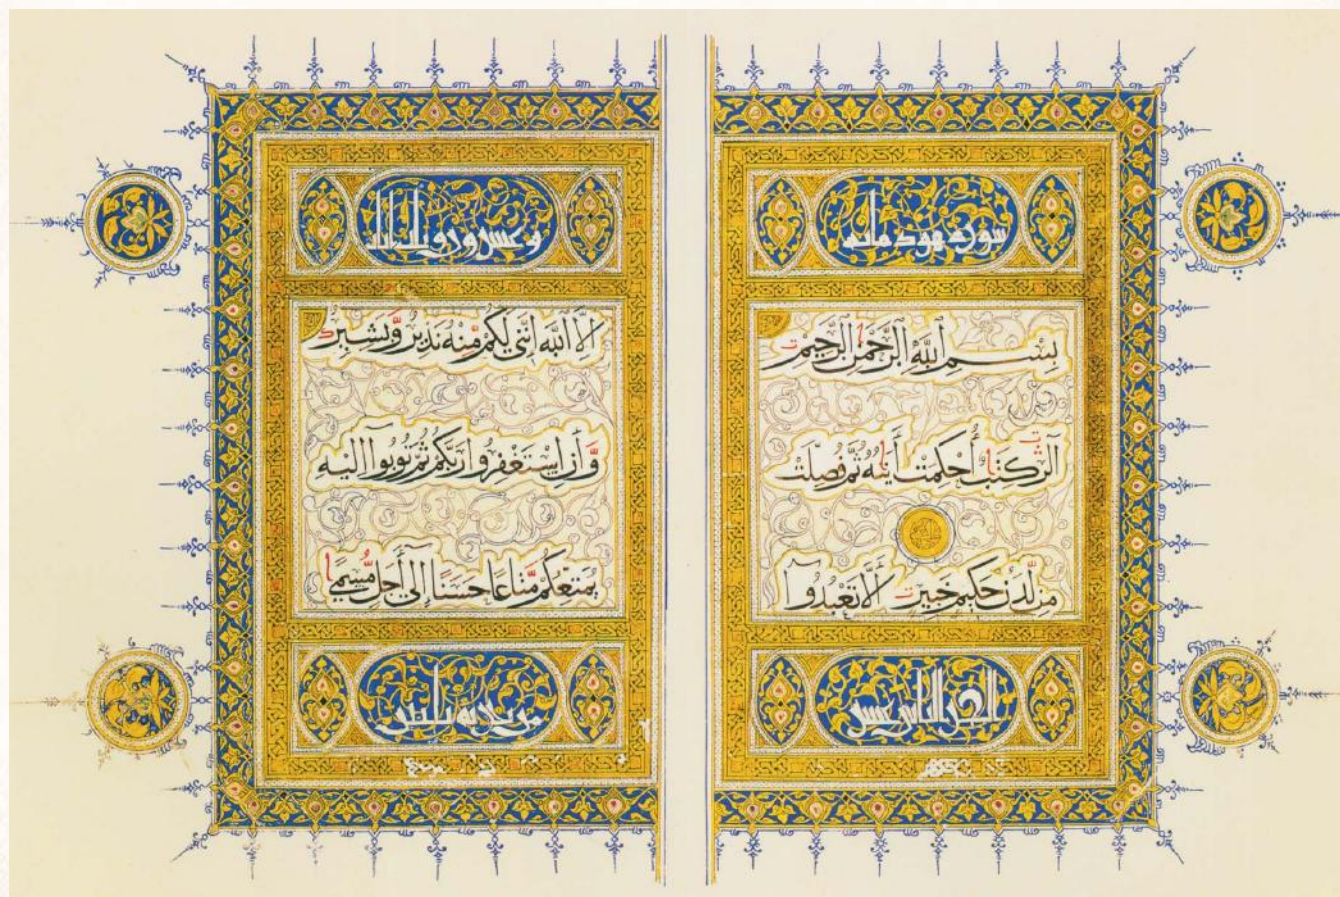 سورة هود مائة
بِسْمِ اللَّهِ الرَّحْمٰنِ الرَّحِيمِ
الٓر كِتٰبٌ أُحْكِمَتْ أٰيٰتُهُ ثُمَّ فُصِّلَتْ
مِن لَّدُنْ حَكِيمٍ خَبِيرٍ أَلَّا تَعْبُدُوٓا
وعشرون وثلاث ايات
إِلَّا اللَّهَ إِنَّنِي لَكُم مِّنْهُ نَذِيرٌ وَّبَشِيرٌ
وَّأَنِ اسْتَغْفِرُوا رَبَّكُمْ ثُمَّ تُوبُوٓا إِلَيْهِ
يُمَتِّعْكُم مَّتَاعًا حَسَنًا إِلَىٓ أَجَلٍ مُّسَمًّى